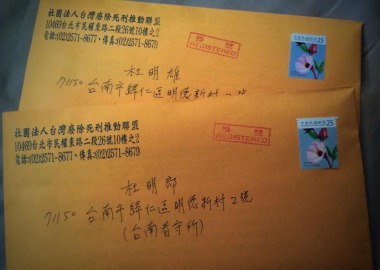 社團法人台灣廢除死刑推動聯盟
10469台北市民權東路二段26號10樓之2
電話:(02)2571-8677、傳真:(02)2571-8679
掛號
REGISTERED
25
杜明雄
71150 台南市歸仁區明德新村
社團法人台灣廢除死刑推動聯盟
10469台北市民權東路二段26號10樓之2
電話:(02)2571-8677、傳真:(02)2571-8679
掛號
REGISTERED
25
杜明郎
71150 台南市歸仁區明德新村2號
(台南看守所)